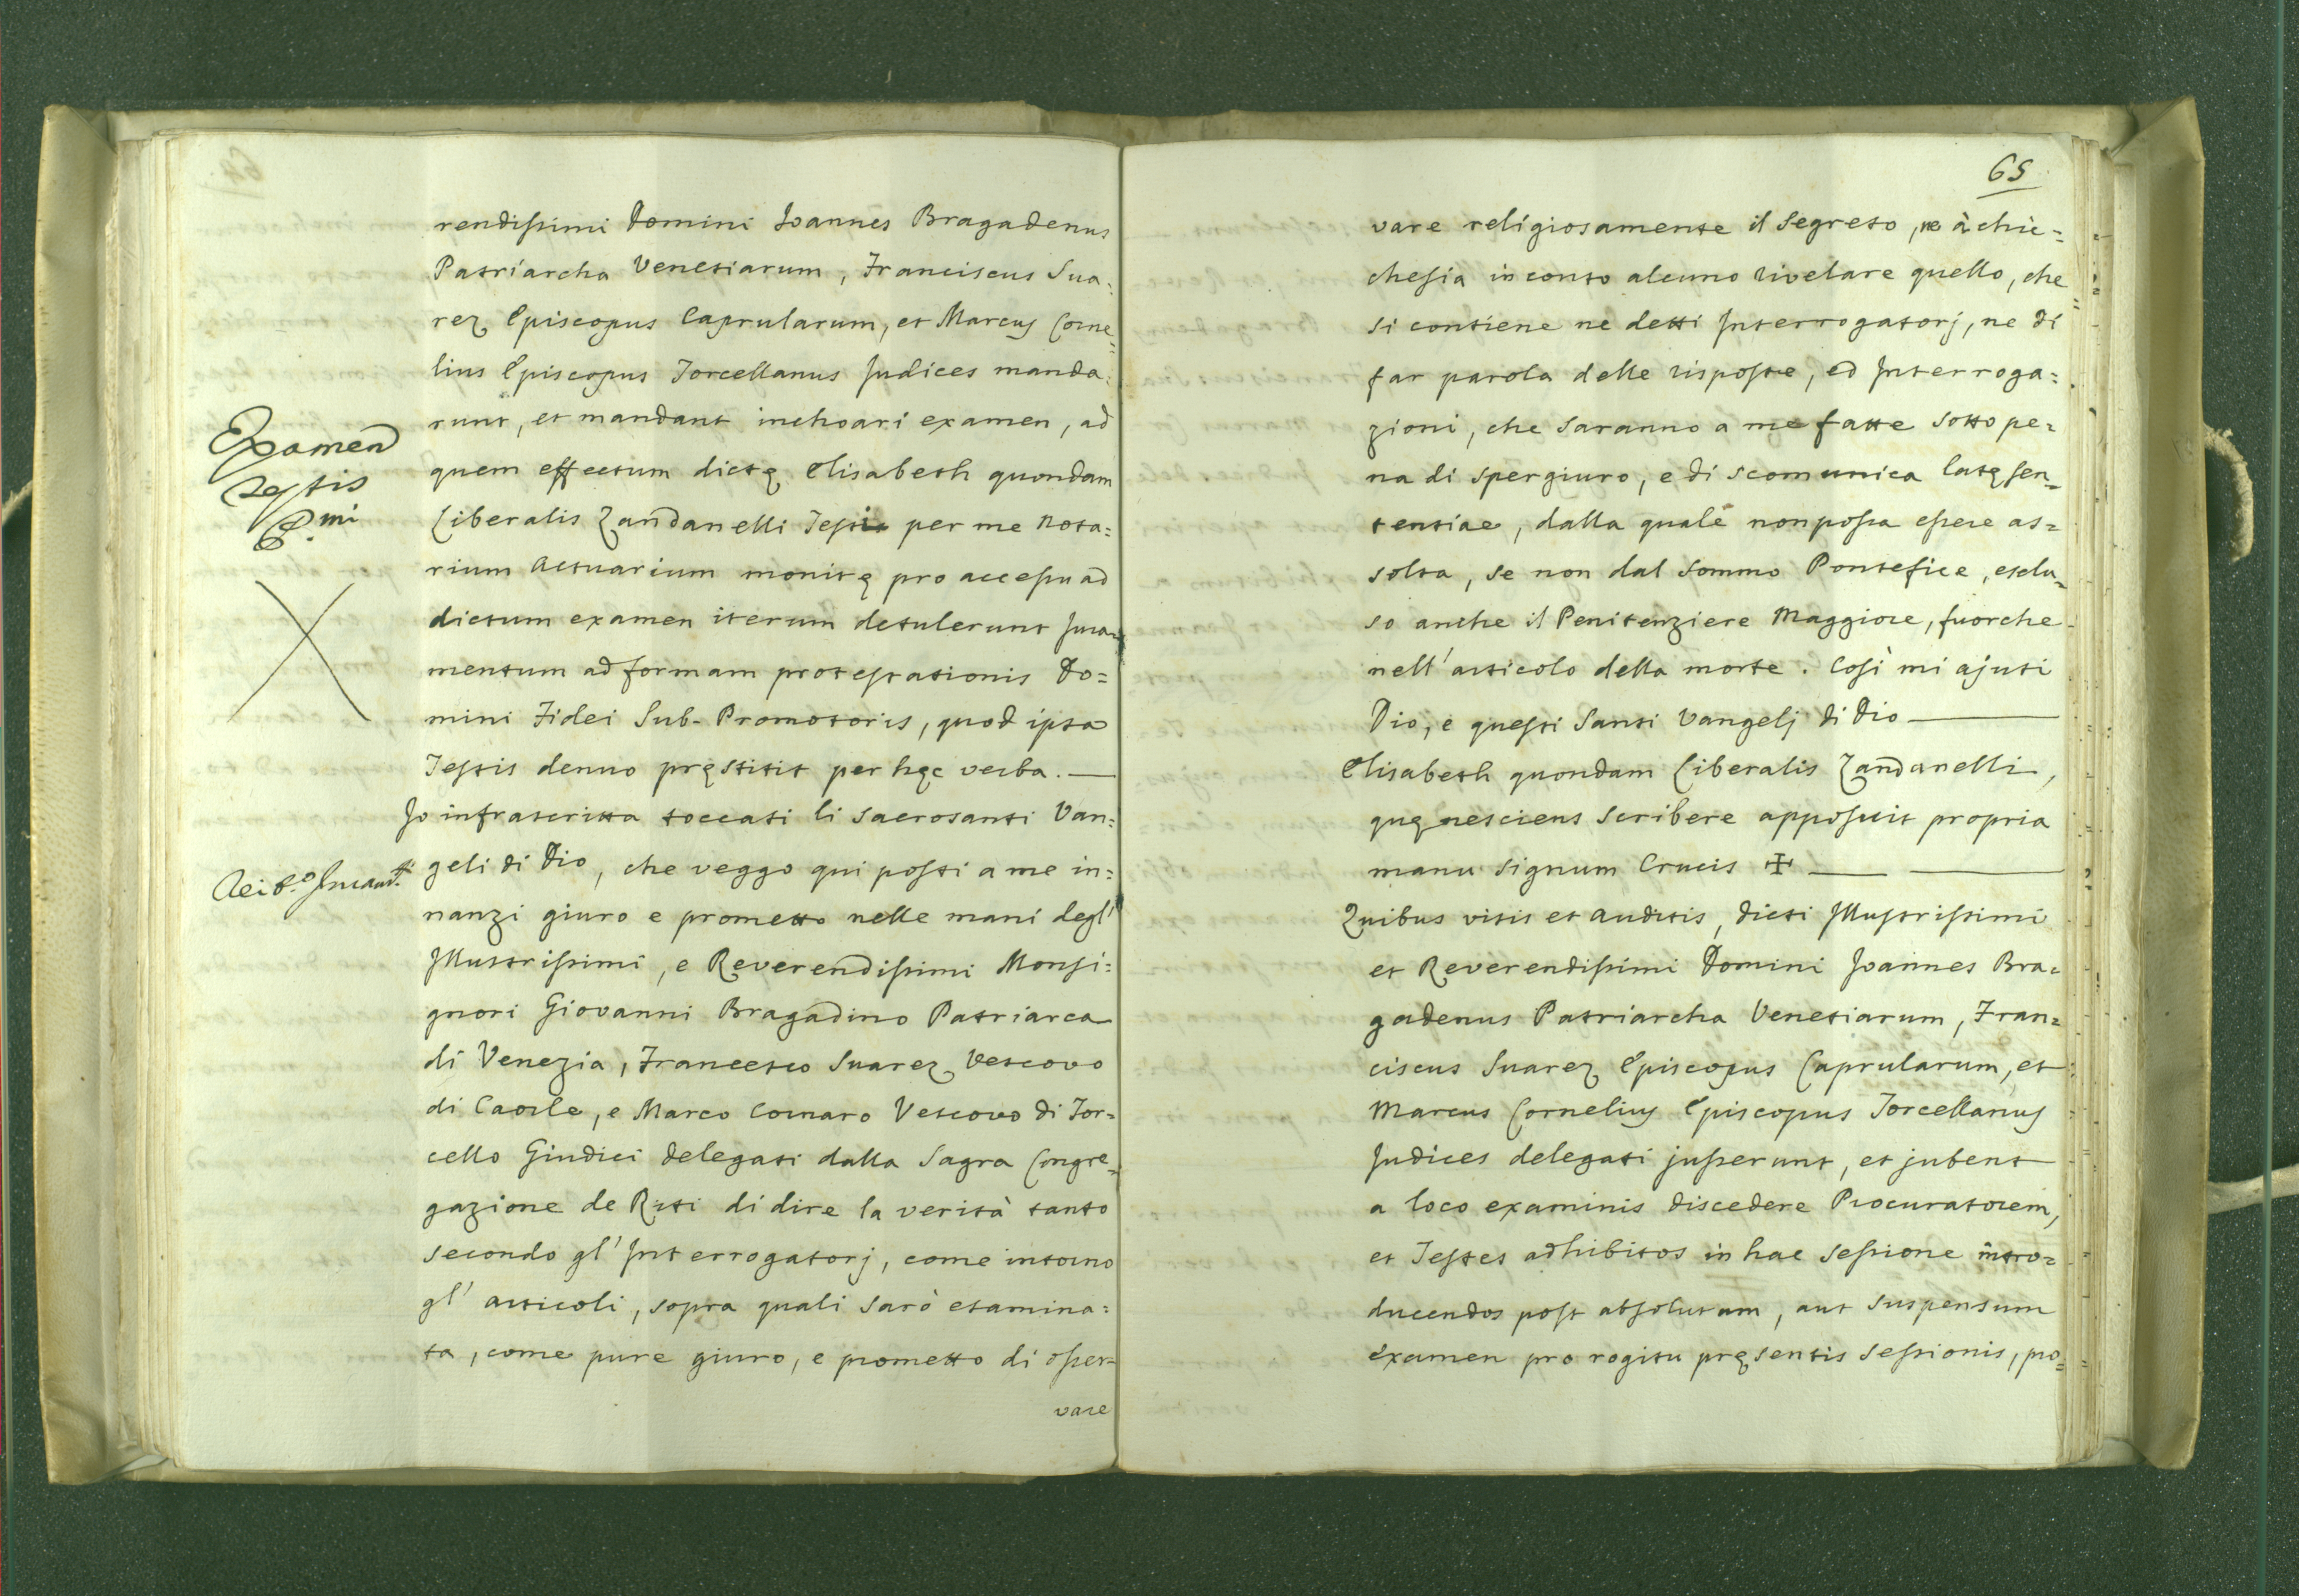 rendissimi Domini Joannes Bragadenus
Patriarcha Venetiarum, Franciscus Sua=
rez Episcopus Caprularum, et Marcus Corne=
lius Episcopus Torcellanus Judices manda=
runt, et mandant inchoari examen, ad
Examen
quem effectum dictę Elisabeth quondam
Testis
Liberalis Zandanelli Testis per me Nota=
P.mi
rium Actuarium monitę pro accessu ad
dictum examen iterum detulerunt Jura=
mentum ad formam protestationis Do=
mini Fidei Sub-Promotoris, quod ipsa
Testis denuo pręstitit per hęc verba.
Jo infrascritta toccati li sacrosanti Van=
geli di Dio, che veggo qui posti a me in=
nanzi giuro e prometto nelle mani degl'
Illustrissimi, e Reverendissimi Monsi=
gnori Giovanni Bragadino Patriarca
di Venezia, Francesco Suarez Vescovo
di Caorle, e Marco Cornaro Vescovo di Tor=
cello Giudici delegati dalla Sagra Congre=
gazione de Riti di dire la verità tanto
secondo gl' Interrogatorj, come intorno
gl' articoli, sopra quali sarò esamina=
ta, come pure giuro, e prometto di osser=
vare
65
vare religiosamente il Segreto, ne à chic=
chesia in conto alcuno rivelare quello, che
si contiene ne detti Interrogatorj, ne di
far parola delle risposte, ed Interroga=
zioni, che saranno a me fatte sotto pe=
na di spergiuro, e di scomunica latę sen=
tentiae, dalla quale non possa essere as=
solta, se non dal Sommo Pontefice, esclu=
so anche il Penitenziere Maggiore, fuorche
nell' articolo della morte. Così mi ajuti
Dio, e questi Santi Vangelj di Dio
Elisabeth quondam Liberalis Zandanelli,
quę nesciens scribere apposuit propria
manu signum Crucis ✠
Quibus visis et auditis, dicti Illustrissimi
et Reverendissimi Domini Joannes Bra=
gadenus Patriarcha Venetiarum, Fran=
ciscus Suarez Episcopus Caprularum, et
Marcus Cornelius Episcopus Torcellanus
Judices delegati jusserunt, et jubent
a loco examinis discedere Procuratorem,
et Testes adhibitos in hac sessione intro=
ducendos post absolutam, aut suspensum
examen pro rogitu pręsentis sessionis, pro=